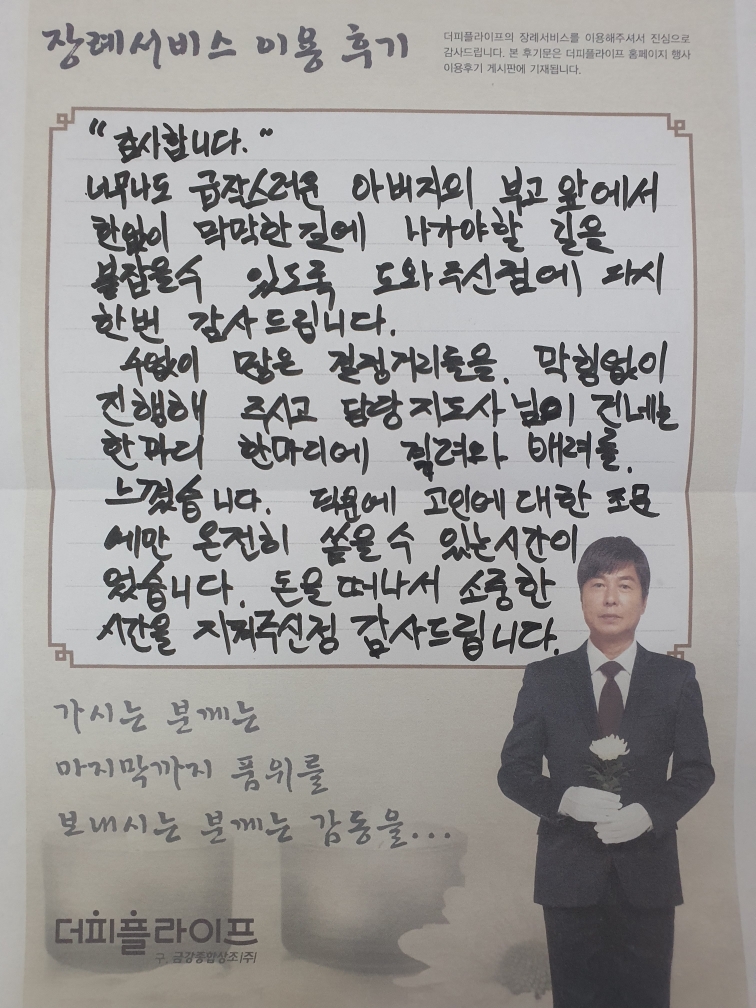 장례서비스 이용 후기
더피플라이프의 장례서비스를 이용해주셔서 진심으로
감사드립니다. 본 후기문은 더피플라이프 홈페이지 행사
이용후기 게시판에 기재됩니다.
"감사합니다."
너무나도 급작스러운 아버지의 부고 앞에서
한없이 막막한 길에 나가야할 길을
붙잡을수 있도록 도와주신점에 다시
한번 감사드립니다.
수없이 많은 결정거리들을, 막힘없이
진행해 주시고 담당지도사님이 건네는
한마디 한마디에 격려와 배려를,
느꼈습니다. 덕분에 고인에 대한 조문
에만 온전히 쏟을수 있는시간이
었습니다. 돈을 떠나서 소중한
시간을 지켜주신점 감사드립니다.
가시는 분께는
마지막까지 품위를
보내시는 분께는 감동을...
더피플라이프
구. 금강종합상조(주)